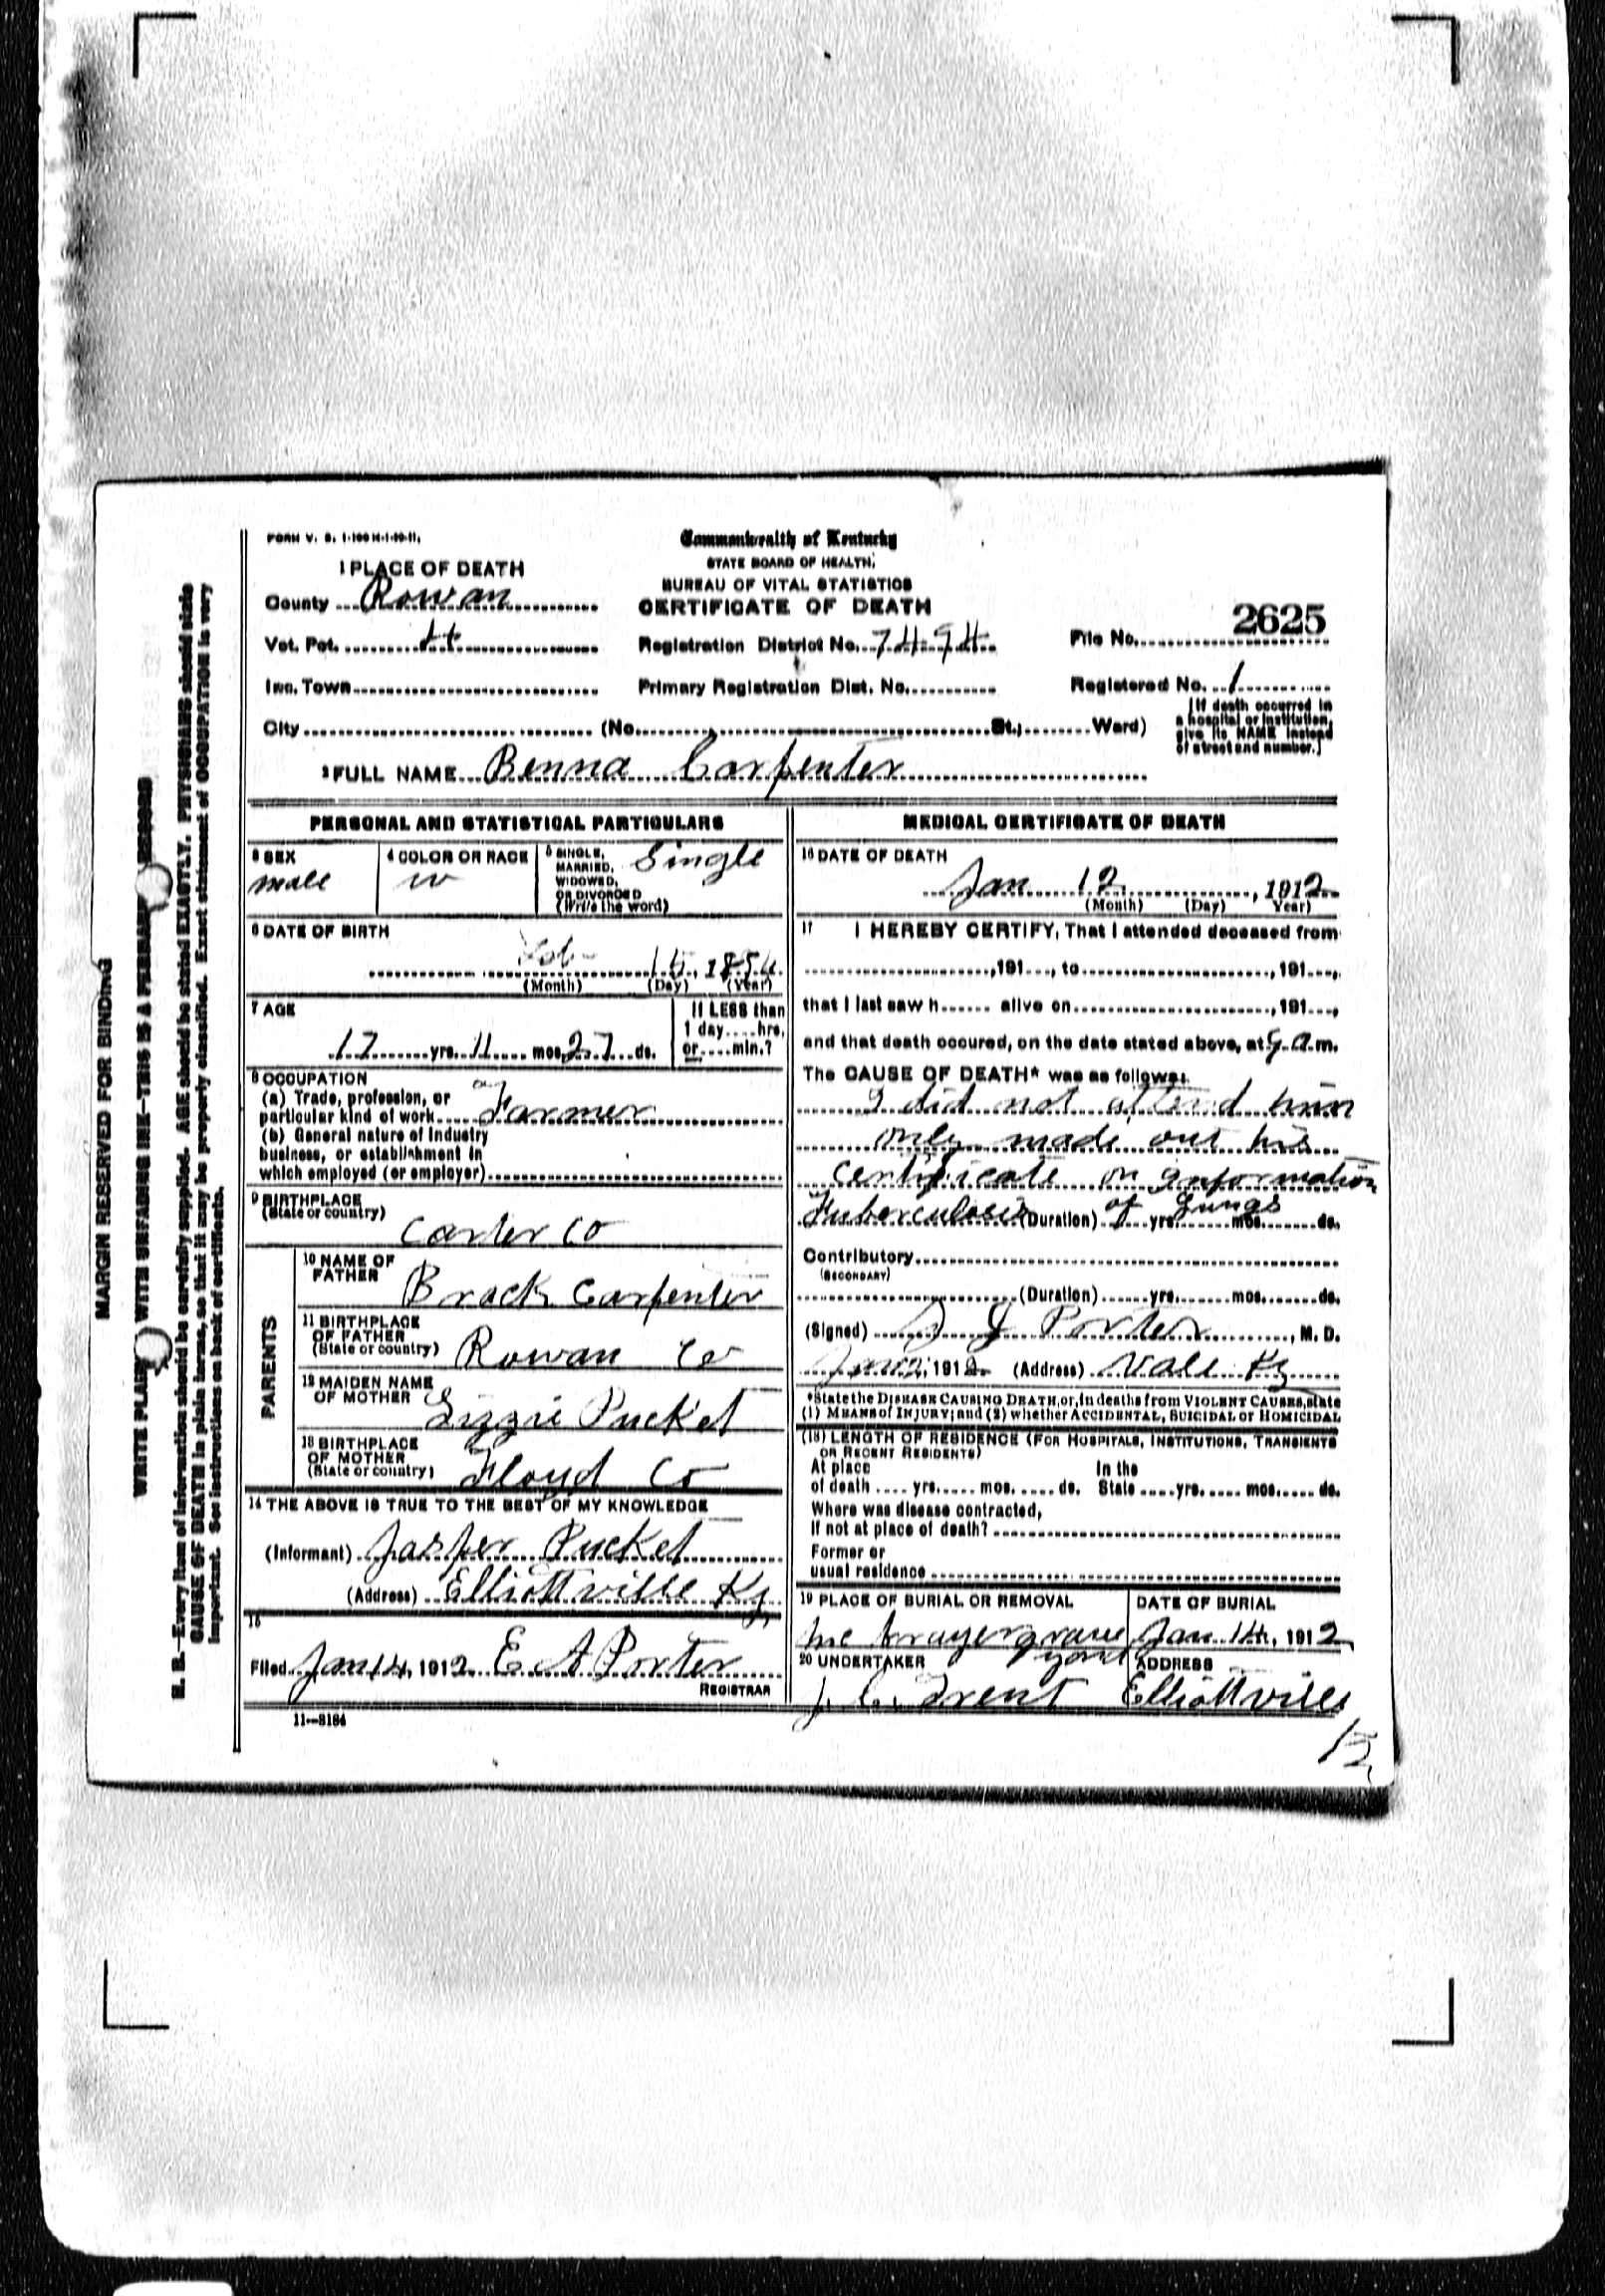 FORM V. S. 1-100 M-1-10-11.
Commonwealth of Kentucky
STATE BOARD OF HEALTH.
BUREAU OF VITAL STATISTICS
CERTIFICATE OF DEATH
1 PLACE OF DEATH
County Rowan
Vot. Pct. 4
Registration District No. 7494
File No. 2625
Inc. Town
Primary Registration Dist. No.
Registered No. 1
City (No. St.; Ward)
[If death occurred in a hospital or institution, give its NAME instead of street and number.]
2 FULL NAME Benna Carpenter
PERSONAL AND STATISTICAL PARTICULARS
3 SEX
male
4 COLOR OR RACE
w
5 SINGLE, MARRIED, WIDOWED, OR DIVORCED (Write the word)
Single
6 DATE OF BIRTH
Feb 15, 1894
(Month) (Day) (Year)
7 AGE
17 yrs. 11 mos. 27 ds.
If LESS than 1 day hrs. or min.?
8 OCCUPATION
(a) Trade, profession, or
particular kind of work a Farmer
(b) General nature of Industry
business, or establishment in
which employed (or employer)
9 BIRTHPLACE
(State or country)
Carter Co
PARENTS
10 NAME OF FATHER
Brack Carpenter
11 BIRTHPLACE OF FATHER (State or country)
Rowan Co
12 MAIDEN NAME OF MOTHER
Lizzie Pucket
13 BIRTHPLACE OF MOTHER (State or country)
Floyd Co
14 THE ABOVE IS TRUE TO THE BEST OF MY KNOWLEDGE
(Informant) Jasper Pucket
(Address) Elliottville Ky
15
Filed Jan 14, 1912 E A Porter
REGISTRAR
11—3184
MEDICAL CERTIFICATE OF DEATH
16 DATE OF DEATH
Jan 12, 1912
(Month) (Day) Year)
17 I HEREBY CERTIFY, That I attended deceased from
,191 , to , 191 ,
that I last saw h alive on , 191 ,
and that death occured, on the date stated above, at 9 a.m.
The CAUSE OF DEATH* was as follows:
I did not attend him
only made out his
certificate on information
Tuberculosis of Lungs
(Duration) yrs. mos. ds.
Contributory
(SECONDARY)
(Duration) yrs. mos. ds.
(Signed) J Porter, M. D.
, 1912 (Address) Vale Ky
*State the DISEASE CAUSING DEATH, or, in deaths from VIOLENT CAUSES, state
(1) MEANS of INJURY; and (2) whether ACCIDENTAL, SUICIDAL or HOMICIDAL
(18) LENGTH OF RESIDENCE (FOR HOSPITALS, INSTITUTIONS, TRANSIENTS
OR RECENT RESIDENTS)
At place of death yrs. mos. ds.
In the State yrs. mos. ds.
Where was disease contracted,
If not at place of death?
Former or
usual residence
19 PLACE OF BURIAL OR REMOVAL
grave yard
DATE OF BURIAL
Jan 14, 1912
20 UNDERTAKER
J. C. Trent
ADDRESS
Elliottville
MARGIN RESERVED FOR BINDING
WRITE PLAINLY WITH UNFADING INK—THIS IS A PERMANENT RECORD
N. B.—Every item of information should be carefully supplied. AGE should be stated EXACTLY. PHYSICIANS should state
CAUSE OF DEATH in plain terms, so that it may be properly classified. Exact statement of OCCUPATION is very
important. See instructions on back of certificate.